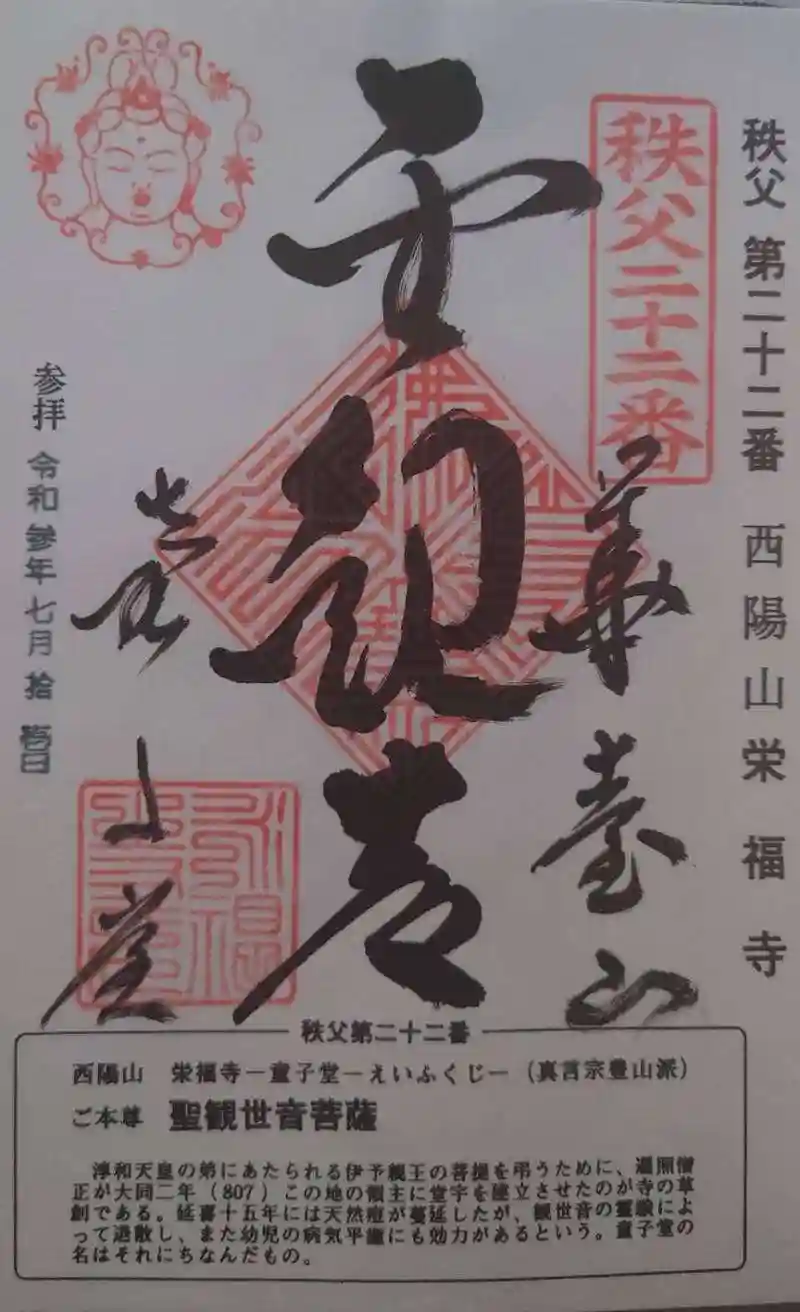 秩父 第二十二番 西陽山栄福寺
秩父二十二番
華臺山
聖観音
童子堂
参拝 令和參年七月拾壱日
秩父第二十二番
西陽山 栄福寺－童子堂－えいふくじ－（真言宗豊山派）
ご本尊 聖観世音菩薩
淳和天皇の弟にあたられる伊予親王の菩提を弔うために、遍照僧
正が大同二年（807）この地の領主に堂宇を建立させたのが寺の草
創である。延喜十五年には天然痘が蔓延したが、観世音の霊験によ
って退散し、また幼児の病気平癒にも効力があるという。童子堂の
名はそれにちなんだもの。